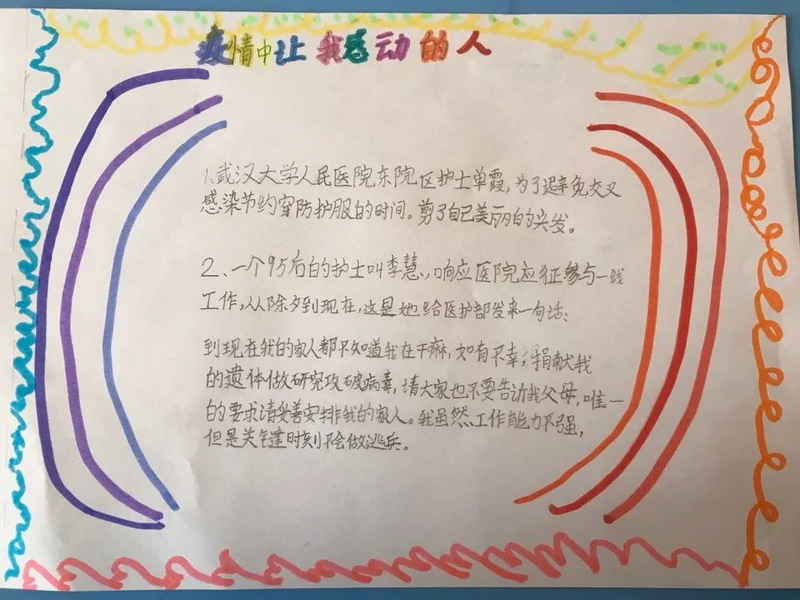 疫情中让我感动的人
1、武汉大学人民医院东院区护士单霞,为了避免交叉
感染节约穿防护服的时间。剪了自己美丽的头发。
2、一个95后的护士叫李慧,响应医院应征参与一线
工作,从除夕到现在,这是她给医护部发来一句话:
到现在我的家人都不知道我在干嘛,如有不幸,捐献我
的遗体做研究攻破病毒,请大家也不要告诉我父母,唯一
的要求请妥善安排我的家人。我虽然工作能力不强,
但是关键时刻不会做逃兵。